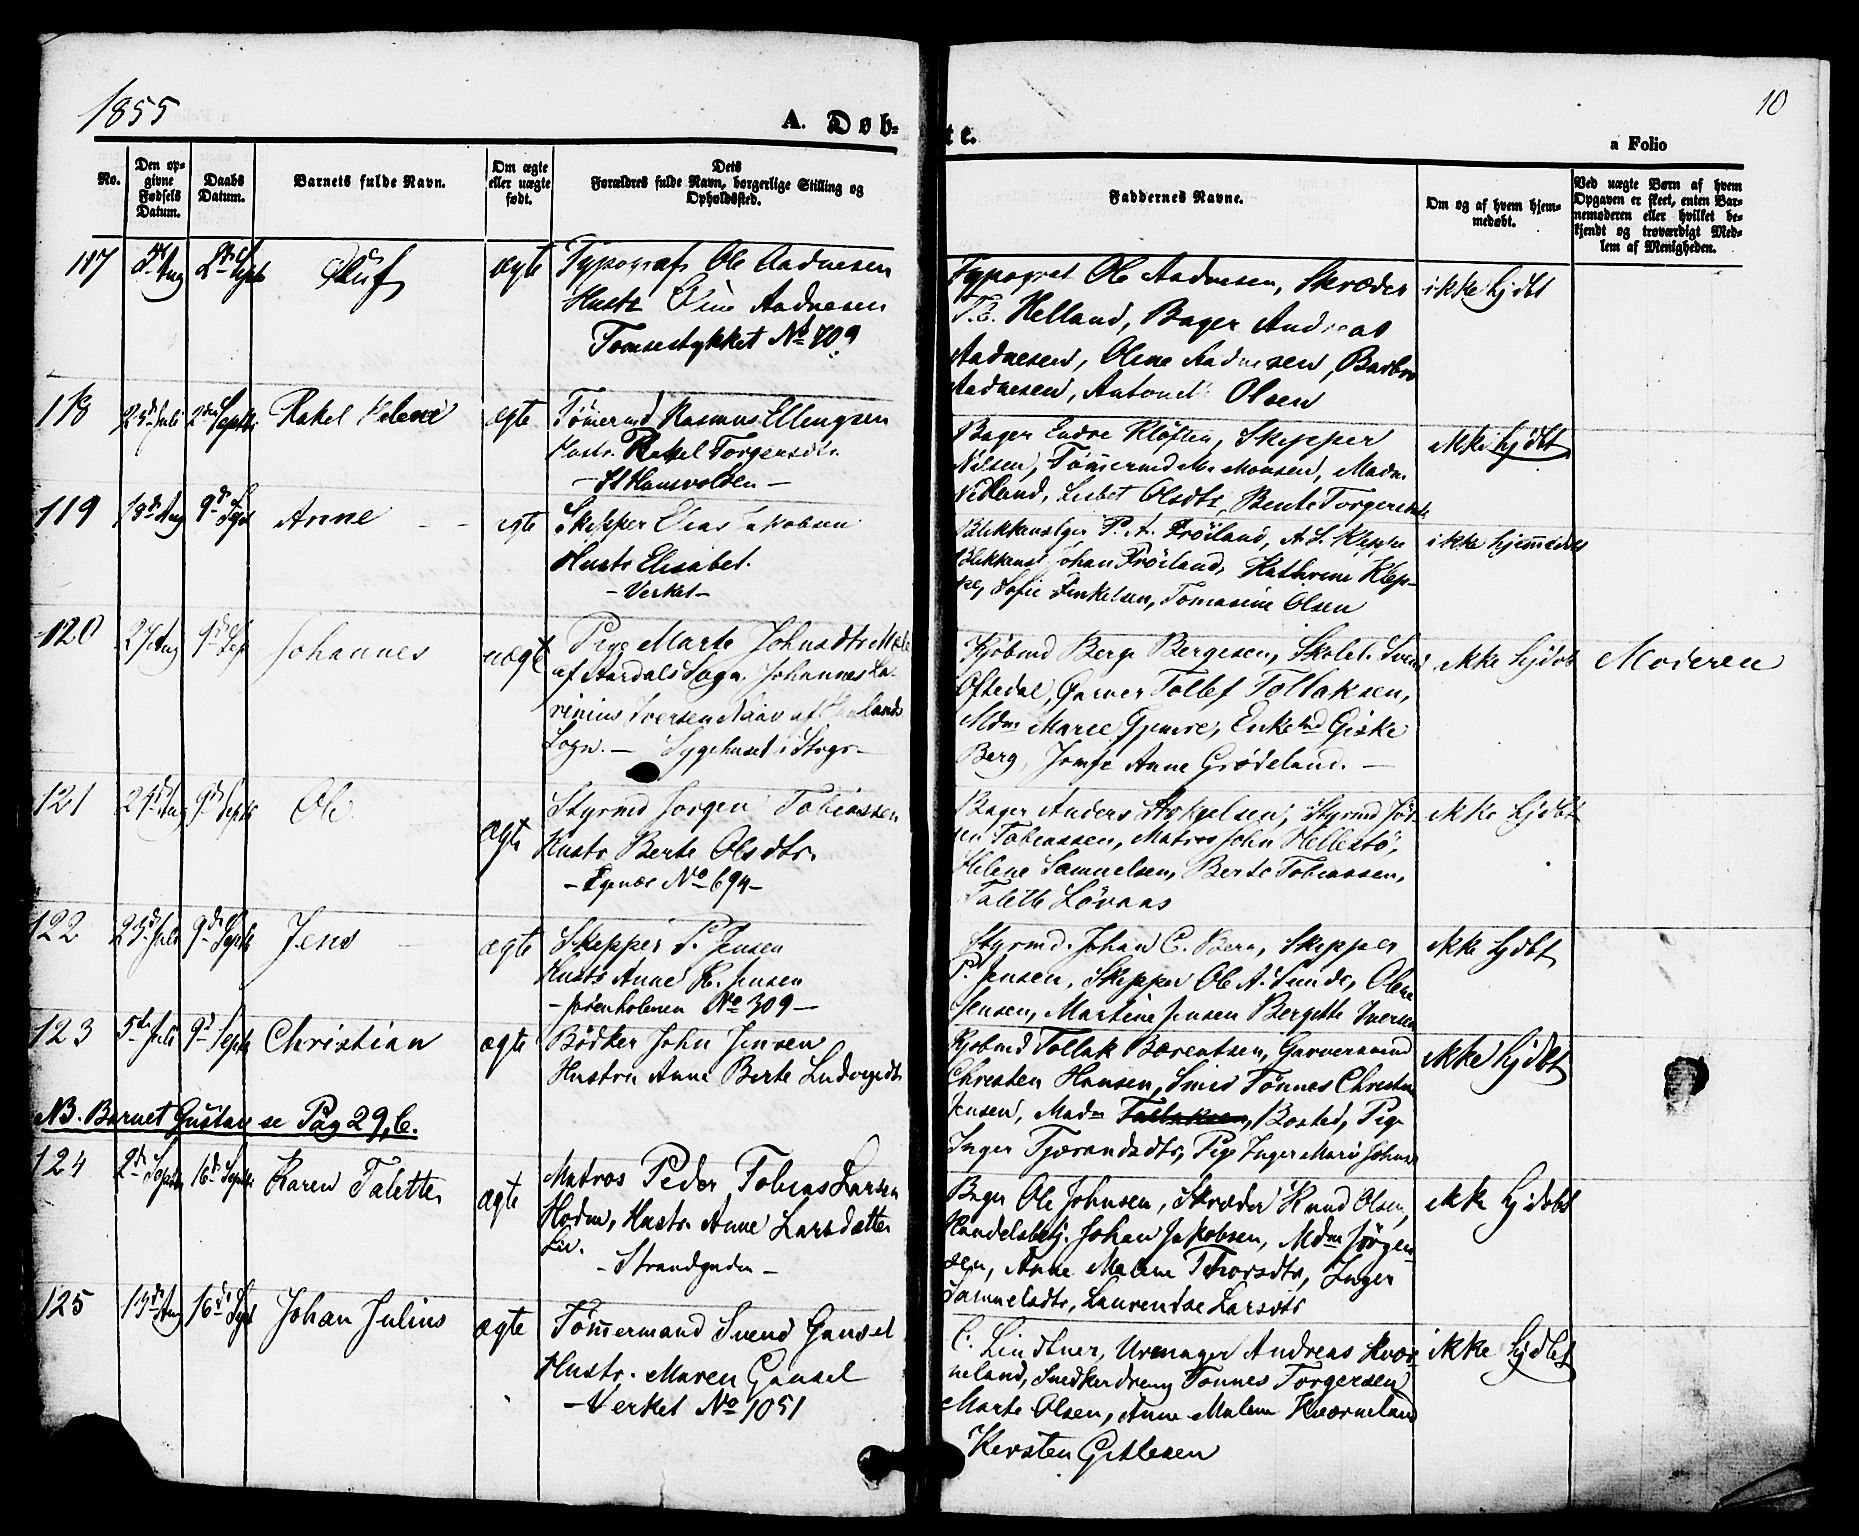 1855
A. Døb-
te.
10
a Folio
No.
Den op-
givne
Fødsels
Datum.
Daabs
Datum.
Barnets fulde Navn.
Om ægte
eller uægte
født.
Dets
Forældres fulde Navn, borgerlige Stilling og
Opholdssted.
Faddernes Navne.
Om og af hvem hjem-
medøbt.
Ved uægte Børn af hvem
Opgaven er skeet, enten Bar-
nemoderen eller hvilket be-
kjendt og troværdigt Med-
lem af Menigheden.
117 Aug 2den Sept Oluf ægte Typograf Ole Aadnesen
Hustr Aadnesen
No 709
Typograf Ole Aadnesen, Skræder
Helland, Bager Andreas
Aadnesen, Olene Aadnesen, Barbro
Aadnesen, Olsen
ikke hjdbt
118 25d Juli 2den Septbr Rakel Helene ægte Tömermd Rasmus Ellingsen
Hustr. Rakel Torgersdtr.
- St Hansvolden -
Bager Endre Kløften, Skipper
Nilsen, Tömermd M. Monsen, Madm
Lisbet Olsdtr, Bente
ikke hjdbt
119 19d Aug 9d Sept Anne ægte Skipper Elias Jakobsen
Hustr Elisabet.
- Verket -
P. A. Fröiland, A. S. Kleppe
Johan Fröiland, Kathrine Klep-
pe, Sofie Tomasine Olsen
ikke hjemmedbt
120 Aug 9d Sep Johannes uægte Pige Marte Johnsdtr Mæle
af Aardals Sogn. Johannes La-
rinius Iversen
Sogn. - Sygehuset i Stvgr -
Kjöbmd Berge Bergesen, Skolel. Svend
Oftedal, Garver Tollef Tollaksen,
Mdm Marie Enkemd Giske
Berg, Jomfr Anne Grödeland. -
ikke hjdbt Moderen
121 24d Aug 9d Septb Ole ægte Styrmd Jörgen Tobiassen
Hustr Berte Olsdtr.
- Egenæs No 694 -
Bager Anders Styrmd Jör-
gen Tobiassen, Matros John Hellestö,
Helene Samuelsen, Berte Tobiassen,
Talette Lövaas
ikke hjdbt
122 25d Juli 9de Septb Jens ægte Skipper P. Jensen
Hustr Anne K. Jensen
No 309 -
Styrmd. Johan C. Berg, Skipper
P. Jensen, Skipper Ole A. Sunde, Olene
Jensen, Martine Jensen Bergitte Iversen
ikke hjdbt
123 5te Juli 9d Septb Christian ægte Bödker John Jensen
Hustru Anne Berte Ludvigsdtr
Kjöbmd Tollak Börentsen, Garversvend
Christen Hansen, Smed Tönnes Christn
Jensen, Madm Tollaksen, Bosted, Pige
Inger Tjerandsdtr, Pige Inger Marie Johns
ikke hjdbt
NB. Barnet Gustav se Pag 29, 6.
124 2d Septbr 16d Septbr Karen Talette ægte Matros Peder Tobias Larsen
Hodm, Hustr. Anne Larsdatter
Lie.
- Strandgaden -
Bager Ole Johnsen, Skræder Knud Olsen,
Handelsbetj. Johan Jakobsen, Mdm Jörgen-
sen, Anne Malene Thorsdtr, Inger
Samuelsdtr, Laurentse Larsdtr
ikke hjdbt
125 19de Aug 16de Sept Johan Julius ægte Tömmermand Svend Gausel
Hustr. Maren Gausel
- Verket No 1051
C. Lindtner, Urmager Andreas Kvær-
neland, Snedkerdreng Tönnes Torgersen
Marte Olsen, Anne Malene Kværneland
Kirsten Gitlesen
ikke hjdbt